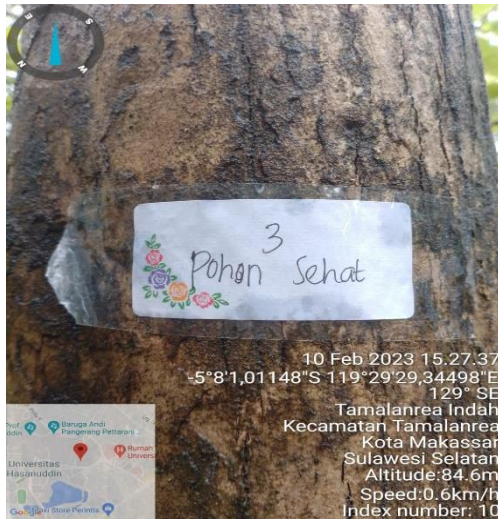 3
Pohon Sehat
10 Feb 2023 15.27.37
-5°8'1,01148"S 119°29'29,34498"E
129° SE
Tamalanrea Indah
Kecamatan Tamalanrea
Kota Makassar
Sulawesi Selatan
Altitude:84.6m
Speed:0.6km/h
Index number: 10
Prof.
ddin
Baruga Andi
Pangerang Pettarani
Rumah
Univers
Universitas
Hasanuddin
Google
Store Perintis
N
E
S
W